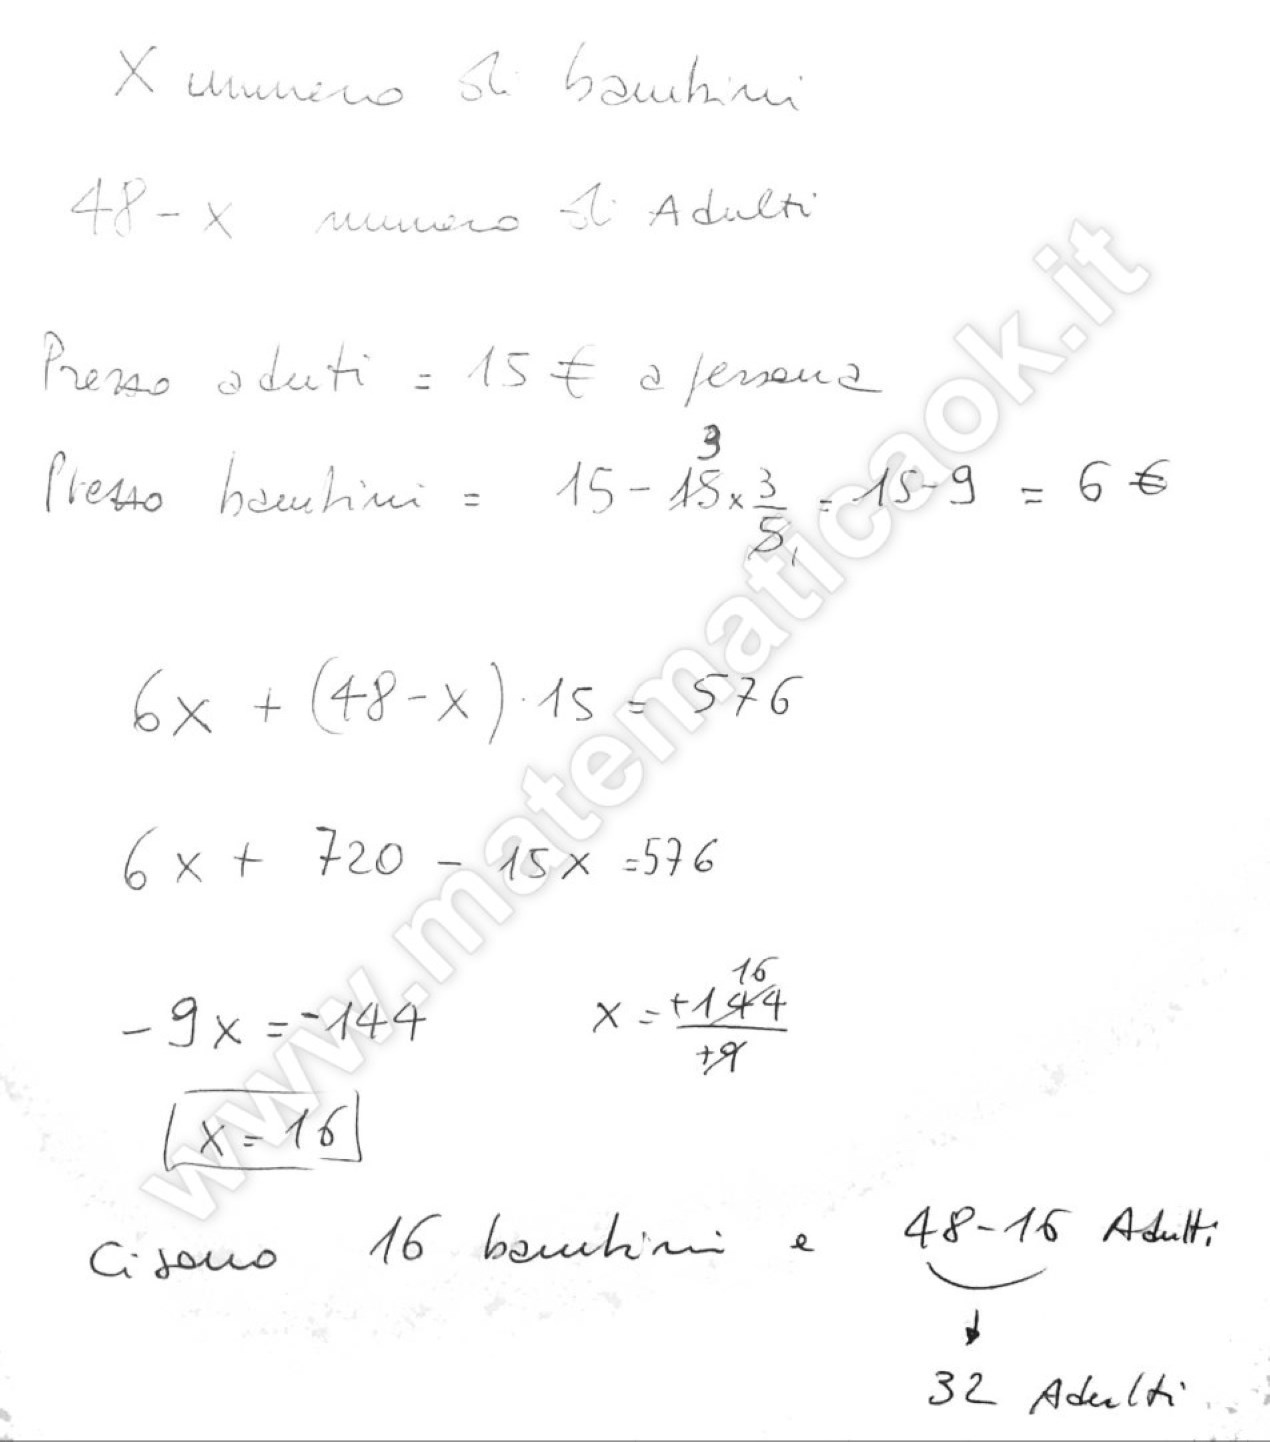 X numero di bambini
48-x numero di Adulti
Prezzo aduti = 15 € a persona
Prezzo bambini = 15 - 15 3 x 3/5 1 = 15-9 = 6 €
6x + (48-x)·15 = 576
6x + 720 - 15x =576
-9x = -144 x = +144/+9 16
x = 16
Ci sono 16 bambini e 48-16 Adulti
32 Adulti
www.matematicaok.it